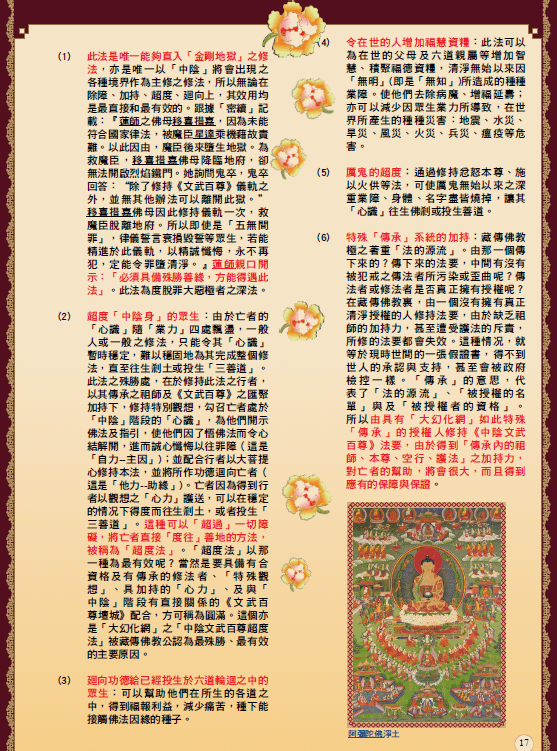 (1) 此法是唯一能夠直入「金剛地獄」之修
法，亦是唯一以「中陰」將會出現之
各種境界作為主修之修法，所以無論在
除障、加持、超度、迴向上，其效用均
是最直接和最有效的。跟據「密續」記
載：『蓮師之佛母移喜措嘉，因為未能
符合國家律法，被魔臣星達乘機藉故責
難。以此因由，魔臣後來墮生地獄。為
救魔臣，移喜措嘉佛母降臨地府，卻
無法開啟烈焰鐵門。她詢問鬼卒，鬼卒
回答：“除了修持《文武百尊》儀軌之
外，並無其他辦法可以離開此獄。”
移喜措嘉佛母因此修持儀軌一次，救
魔臣脫離地府。所以即使是「五無間
罪」，律儀誓言衰損毀誓等眾生，若能
精進於此儀軌，以精誠懺悔，永不再
犯，定能令罪墮清淨。』蓮師親口開
示：「必須具備殊勝善緣，方能得遇此
法」。此法為度脫罪大惡極者之深法。
(2) 超度「中陰身」的眾生：由於亡者的
「心識」隨「業力」四處飄盪，一般
人或一般之修法，只能令其「心識」
暫時穩定，難以穩固地為其完成整個修
法，直至往生剎土或投生「三善道」。
此法之殊勝處，在於修持此法之行者，
以其傳承之祖師及《文武百尊》之匯聚
加持下，修持特別觀想，勾召亡者處於
「中陰」階段的「心識」，為他們開示
佛法及指引，使他們因了悟佛法而令心
結解開，進而誠心懺悔以往罪障（這是
「自力--主因」）；並配合行者以大菩提
心修持本法，並將所作功德迴向亡者（
這是「他力--助緣」）。亡者因為得到行
者以觀想之「心力」護送，可以在穩定
的情况下得度而往生剎土，或者投生「
三善道」。這種可以「超過」一切障
礙，將亡者直接「度往」善地的方法，
被稱為「超度法」。「超度法」以那
一種為最有效呢？當然是要具備有合
資格及有傳承的修法者、「特殊觀
想」、具加持的「心力」、及與「
中陰」階段有直接關係的《文武百
尊壇城》配合，方可稱為圓滿。這個亦
是「大幻化網」之「中陰文武百尊超度
法」被藏傳佛教公認為最殊勝、最有效
的主要原因。
(3) 迴向功德給已經投生於六道輪迴之中的
眾生：可以幫助他們在所生的各道之
中，得到福報利益，減少痛苦，種下能
接觸佛法因緣的種子。
(4) 令在世的人增加福慧資糧：此法可以
為在世的父母及六道親屬等增加智
慧、積聚福德資糧，清淨無始以來因
「無明」（即是「無知」）所造成的種種
業障。使他們去除病魔、增福延壽；
亦可以減少因眾生業力所導致，在世
界所產生的種種災害：地震、水災、
旱災、風災、火災、兵災、瘟疫等危
害。
(5) 厲鬼的超度：通過修持忿怒本尊、施
以火供等法，可使厲鬼無始以來之深
重業障、身體、名字盡皆燒掉，讓其
「心識」往生佛剎或投生善道。
(6) 特殊「傳承」系統的加持：藏傳佛教
極之著重「法的源流」。由那一個傳
下來的？傳下來的法要，中間有沒有
被犯戒之傳法者所污染或歪曲呢？傳
法者或修法者是否真正擁有授權呢？
在藏傳佛教裏，由一個沒有擁有真正
清淨授權的人修持法要，由於缺乏祖
師的加持力，甚至遭受護法的斥責，
所修的法要都會失效。這種情況，就
等於現時世間的一張假證書，得不到
世人的承認與支持，甚至會被政府
檢控一樣。「傳承」的意思，代
表了「法的源流」、「被授權的名
單」與及「被授權者的資格」。
所以由具有「大幻化網」如此特殊
「傳承」的授權人修持《中陰文武
百尊》法要，由於得到「傳承內的祖
師、本尊、空行、護法」之加持力，
對亡者的幫助，將會很大，而且得到
應有的保障與保證。
阿彌陀佛淨土
17